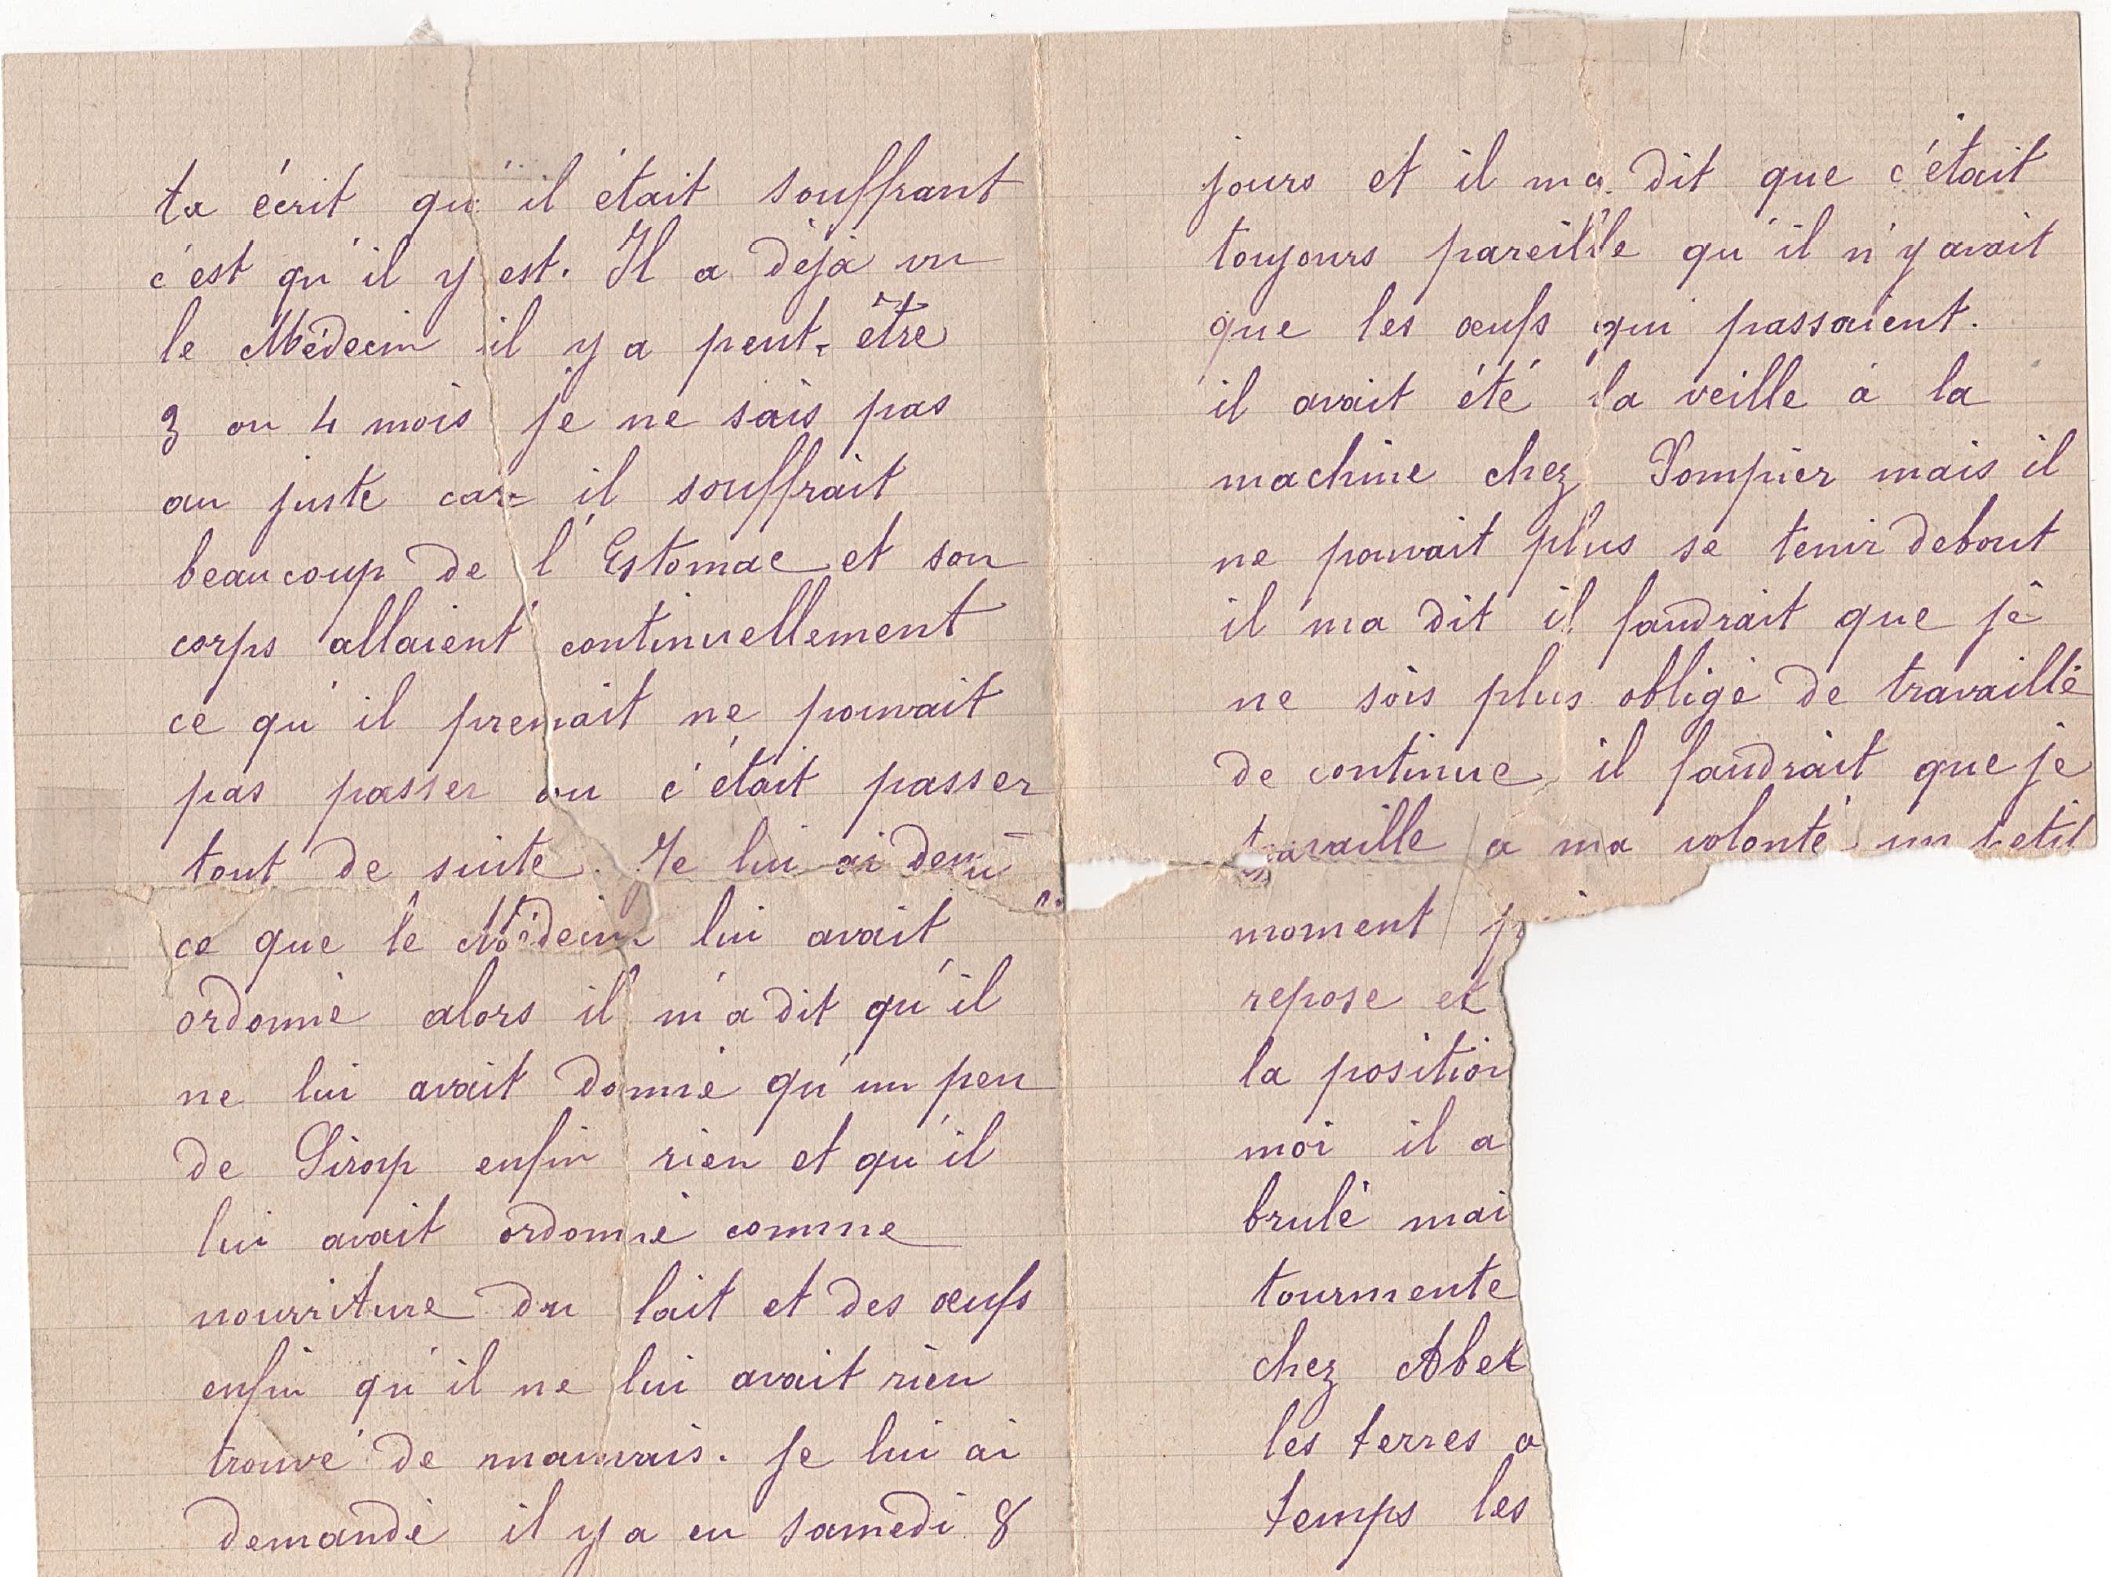 ta écrit qu'il était souffrant
c'est qu'il y est. Il a déjà vu
le Médecin il y a peut-être
3 ou 4 mois je ne sais pas
au juste car il souffrait
beaucoup de l'Estomac et son
corps allaient continuellement
ce qu'il prenait ne pouvait
pas passer ou c'était passer
tout de suite. Je lui ai dem
ce que le Médecin lui avait
ordonné alors il m'a dit qu'il
ne lui avait donné qu'un peu
de Sirop enfin rien et qu'il
lui avait ordonné comme
nourriture du lait et des œufs
enfin qu'il ne lui avait rien
trouvé de mauvais. Je lui ai
demandé il y a eu samedi 8
jours et il ma dit que c'était
toujours pareille qu'il n'y avait
que les œufs qui passaient.
il avait été la veille à la
machine chez Pompier mais il
ne pouvait plus se tenir debout
il ma dit il faudrait que je
ne sois plus obligé de travaillé
de continue il faudrait que je
travaille a ma volonté un petit
moment
repose et
la position
moi il a
brulé mai
tourmente
chez Abel
les terres a
temps les